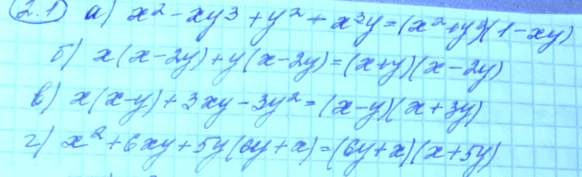 2.1 а) x² - xy3 + y² + x³y = (x² + y³)(1 - xy)
б) x(x - 2y) + y(x - 2y) = (x + y)(x - 2y)
в) x(x - y) + 3xy - 3y² = (x - y)(x + 3y)
г) x² + 6xy + 5y(6y + x) = (6y + x)(x + 5y)